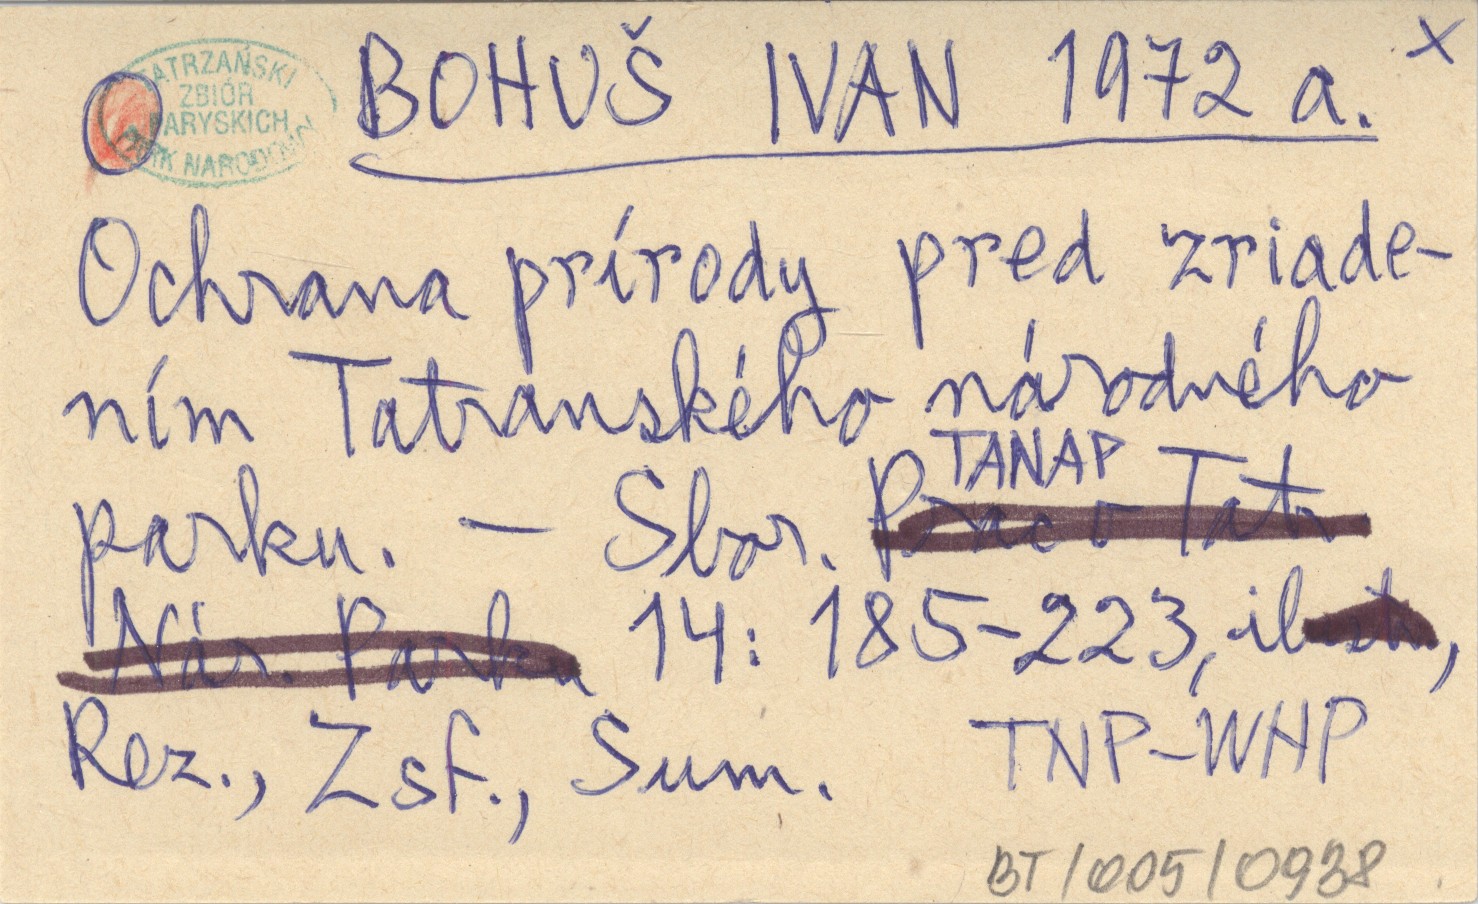 TATRZAŃSKI
ZBIÓR
PARYSKICH
PARK NARODOWY
BOHUŠ IVAN 1972 a. x
Ochrana prírody pred zriade-
ním Tatranského národného
TANAP
parku. - Sbor. Prac o Tatr
Nár. Parku 14: 185-223, il,
Rez., Zsf., Sum. TNP-WHP
BT/005/0938